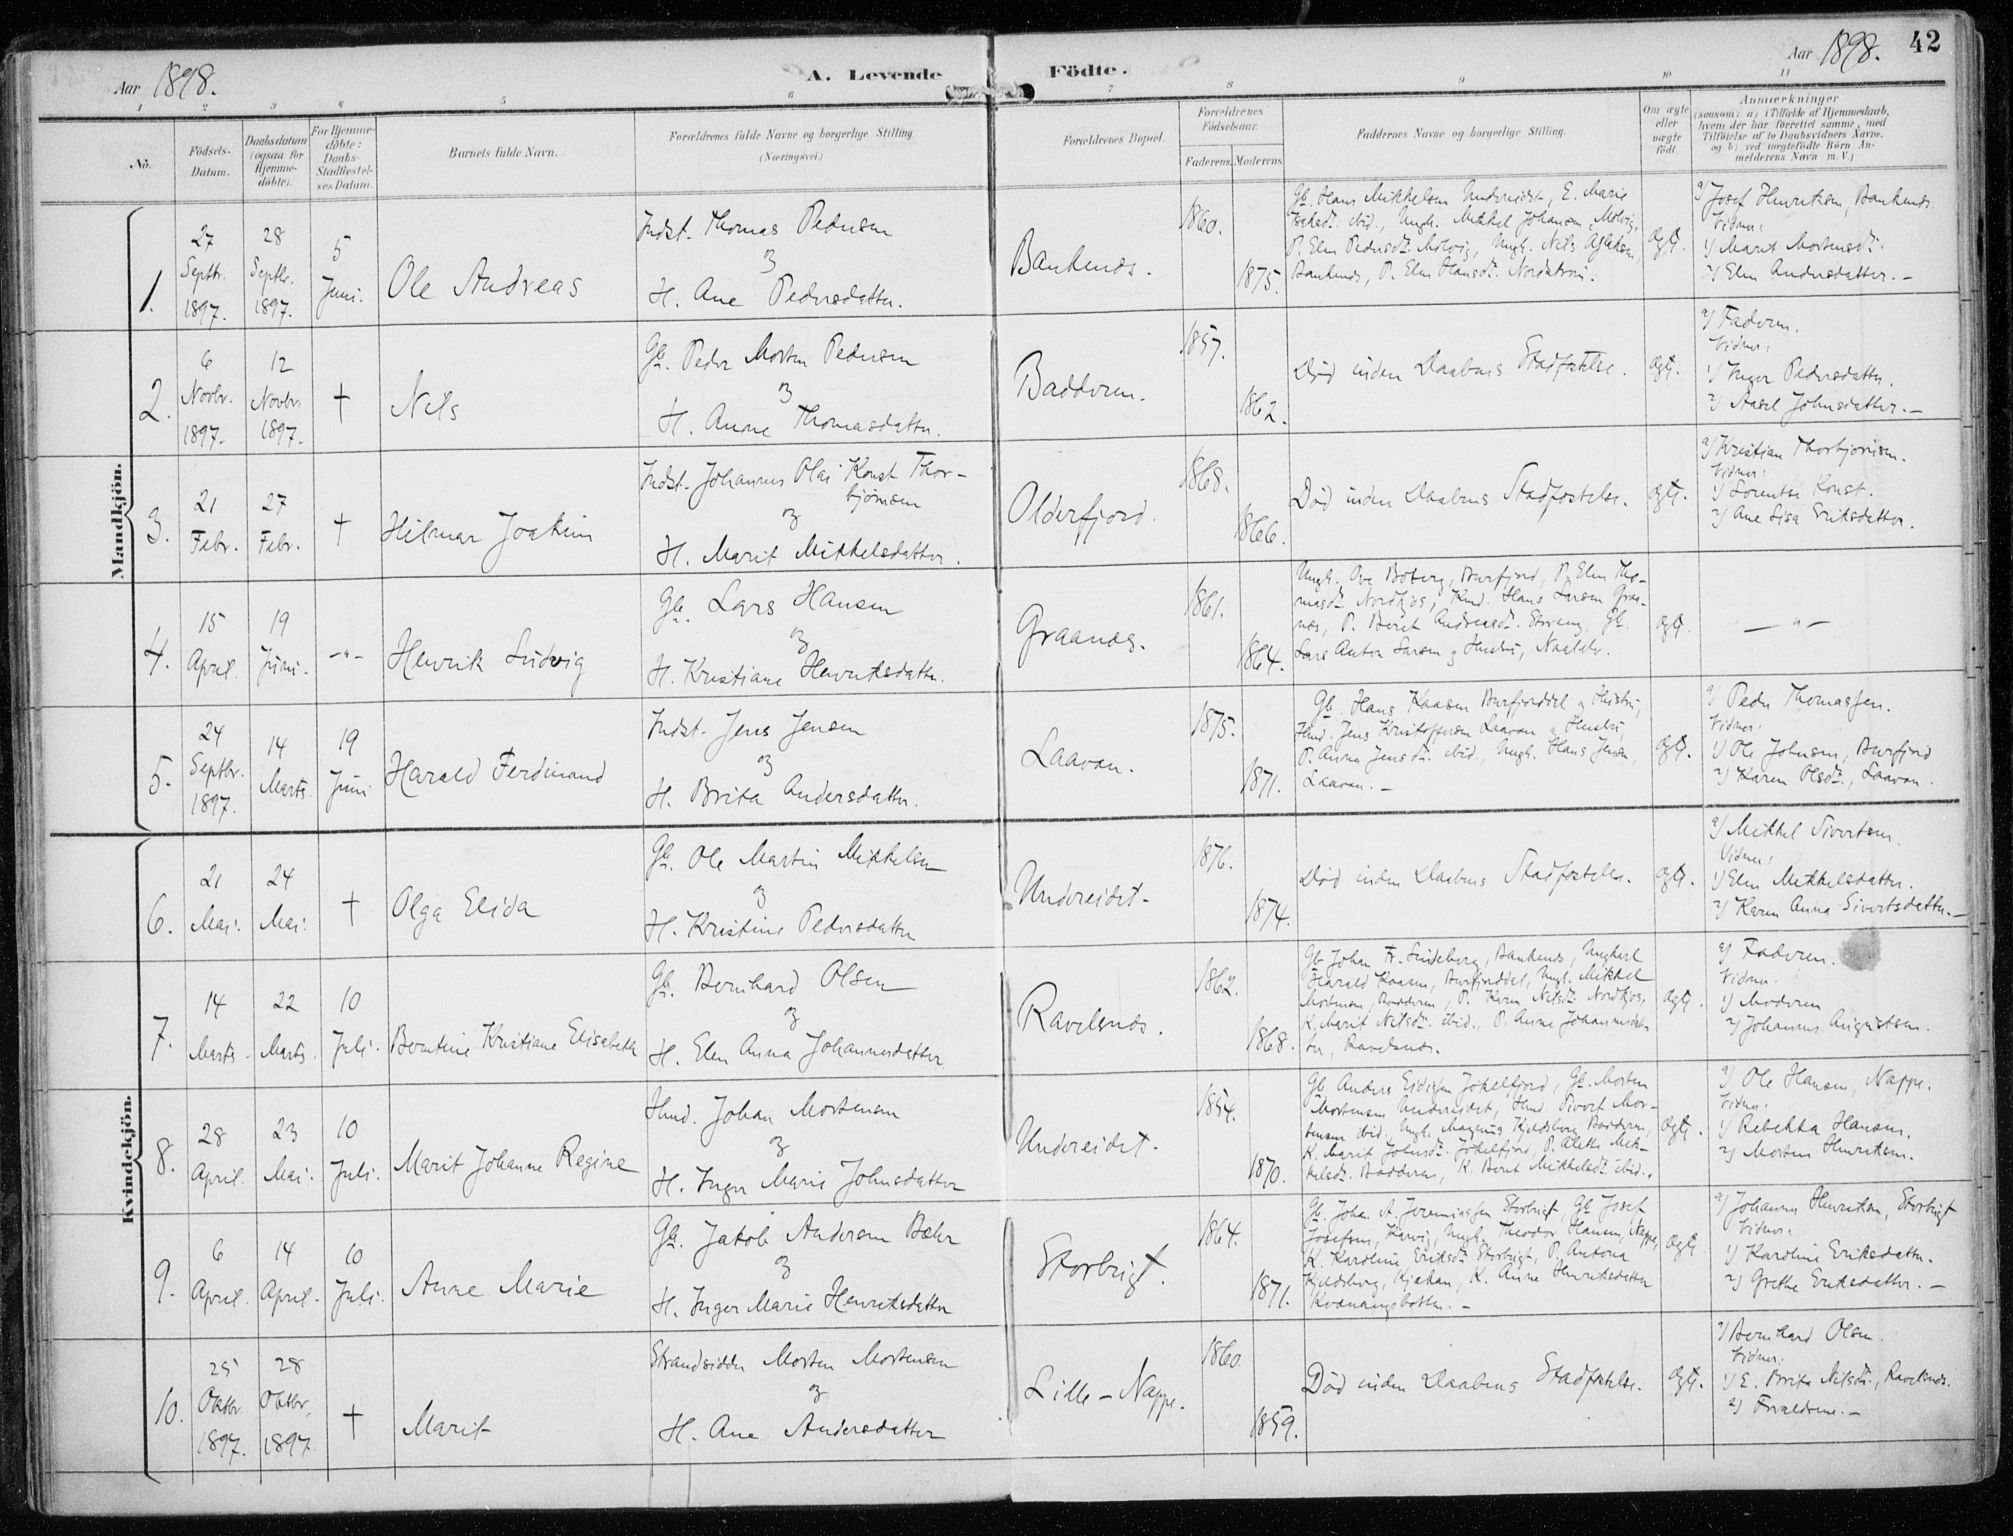 Aar 1898.
A. Levende Födte.
Aar 1898.
42
1 2 3 4 5 6 7 8 9 10 11
No.
Födsels-Datum.
Daabsdatum (ogsaa for Hjemme-döbte).
For Hjemme-döbte: Daabs-Stadfæstel-ses Datum.
Barnets fulde Navn.
Forældrenes fulde Navne og borgerlige Stilling.
(Næringsvei.)
Forældrenes Bopæl.
Forældrenes Födselsaar.
Faderens. Moderens.
Faddernes Navne og borgerlige Stilling.
Om ægte eller uægte födt.
Anmærkninger
(saasom: a) i Tilfælde af Hjemmedaab,
hvem der har forrettet samme, med
Tilföielse af to Daabsvidners Navne.
og b) ved uægtefödte Börn An-
melderens Navn m. V.)
Mandkjön.
1.
27 Septbr. 1897.
28 Septbr. 1897.
5 Juni.
Ole Andreas
Indst. Thomas Pedersen
og
H. Ane Pedersdatter.
Bankenæs.
1860.
1875.
Gb. Hans Mikkelsen Undereidet, E. Marie
ibid., Ungk. Mikkel Johansen, Molvig,
P. Elen Pedersdt. Molvig, Ungk. Nils
Bankenæs, P. Elen Hansdt.
Ægt.
a) Josef Henriksen, Bankenæs.
Vidner:
1) Marit Mortensdt.
2) Elen Andersdatter. —
2.
6 Novbr. 1897.
12 Novbr. 1897.
†
Nils
Gb. Peder Morten Pedersen
og
H. Anne Thomasdatter.
Badderen.
1857.
1862.
Död inden Daabens Stadfæstelse.
Ægt.
a) Faderen.
Vidner:
1) Inger Pedersdatter.
2) Aasel Johnsdatter. —
3.
21 Febr.
27 Febr.
†
Hilmar Joakim
Indst. Johannes Olai Konst Thor-
björnsen
og
H. Marit Mikkelsdatter.
Olderfjord.
1868.
1866.
Död inden Daabens Stadfæstelse.
Ægt.
a) Kristian Thorbjörnsen.
Vidner:
1) Lorentse Konst.
2) Ane Lisa Eriksdatter.
4.
15 April.
19 Juni.
—"—
Henrik Ludvig
Gb. Lars Hansen
og
H. Kristiane Henriksdatter.
Graanæs.
1861.
1864.
Ungk. Ove Boberg, Burfjord, P. Elen Tho-
masdt. Nordkjos, Kmd. Hans Larsen Graa-
næs, P. Berit Andreasdt. Storeng, Gb.
Lars Anton Larsen og Hustru,
Ægt.
— " —
5.
24 Septbr. 1897.
14 Marts.
19 Juni
Harald Ferdinand
Indst. Jens Jensen
og
H. Brita Andersdatter.
Laavan.
1875.
1871.
Gb. Hans Kaasen Burfjorddal og Hustru,
Hmd. Jens Kristoffersen Laavan og Hustru,
P. Anna Jensdt. ibid., Ungk. Hans Jensen,
Laavan. —
Ægt.
a) Peder Thomassen.
Vidner:
1) Ole Johnsen, Burfjord
2) Karen Olsdt., Laavan.
Kvindekjön.
6.
21 Mai.
24 Mai.
†
Olga Elida
Gb. Ole Martin Mikkelsen
og
H. Kristine Pedersdatter
Undereidet.
1876.
1874.
Död inden Daabens Stadfæstelse.
Ægt.
a) Mikkel Sivertsen.
Vidner:
1) Elen Mikkelsdatter.
2) Karen Anna Sivertsdatter. —
7.
14 Marts.
22 Marts.
10 Juli.
Berntine Kristiane Elisabeth
Gb. Bernhard Olsen
og
H. Elen Anna Johannesdatter
Ravelsnæs.
1862.
1868.
Gb Johan Fr. Lindeberg, Bankenæs, Ungkarl
Harald Kaasen, Burfjorddal, Ungk. Mikkel
Mortensen, Badderen, P. Karen Nilsdt. Nordkjos,
K. Marit Nilsdt. ibid., P. Anne Johannesdat-
ter, Ravelsnæs.
Ægt.
a) Faderen.
Vidner.
1) Moderen
2) Johannes Augustsen.
8.
28 April.
23 Mai.
10 Juli.
Marit Johanne Regine
Hmd. Johan Mortensen
og
H. Inger Marie Johnsdatter
Undereidet.
1854.
1870.
Gb Anders Jökelfjord, Gb. Morten
Mortensen Undereidet, Hmd Sivert Mor-
tensen ibid. Ungk. Magnus Kjeldsberg Badderen,
K. Marit Johnsdt. Jökelfjord, P. Alette Mik-
kelsdt. Badderen, K. Berit Mikkelsdt ibid..
Ægt.
a) Ole Hansen, Nappe.
Vidner:
1) Rebekka Hansen.
2) Morten Henriksen.
9.
6 April.
14 April.
10 Juli.
Anne Marie
Gb. Jakob Andersen Bæhr
og
H. Inger Marie Henriksdatter
Storbugt.
1864.
1871.
Gb. Johan A. Jeremiassen Storbugt, Gb Josef
Josefsen, Ungk. Theodor Hansen, Nappe,
K. Karoline Eriksdt Storbugt, P. Antona
Kjeldsberg, Kjækan, K. Anne Henriksdatter
Kvænangsbotten. —
Ægt.
a) Johannes Henriksen, Storbugt
Vidner:
1) Karoline Eriksdatter.
2) Grethe Eriksdatter. —
10.
25 Oktbr. 1897.
28 Oktbr. 1897.
†
Marit
Strandsidder Morten Mortensen
og
H. Ane Andersdatter
Lille-Nappe.
1860.
1859.
Död inden Daabens Stadfæstelse.
Ægt.
a) Bernhard Olsen.
Vidner:
1) E. Brita Nilsdt., Ravelsnæs.
2) Forældrene. —